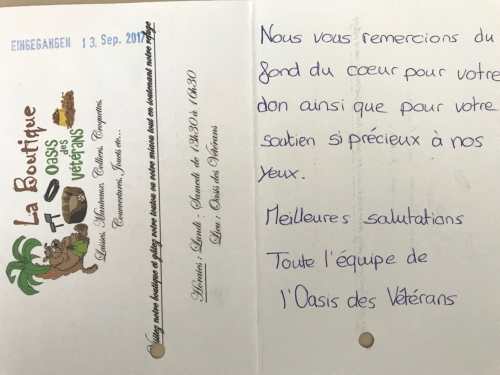 EINGEGANGEN 13. Sep. 2017
La Boutique
Oasis
des
Vétérans
Laisses, Manteaux, Colliers, Croquettes,
Couvertures, Jouets etc...
Visitez notre boutique et gâtez notre toutou ou notre minou tout en soutenant notre refuge
Horaires : Lundi - Samedi de 13h30 à 16h30
Lieu : Oasis des Vétérans
Nous vous remercions du
fond du coeur pour votre
don ainsi que pour votre
soutien si précieux à nos
yeux.
Meilleures salutations
Toute l'équipe de
l'Oasis des Vétérans